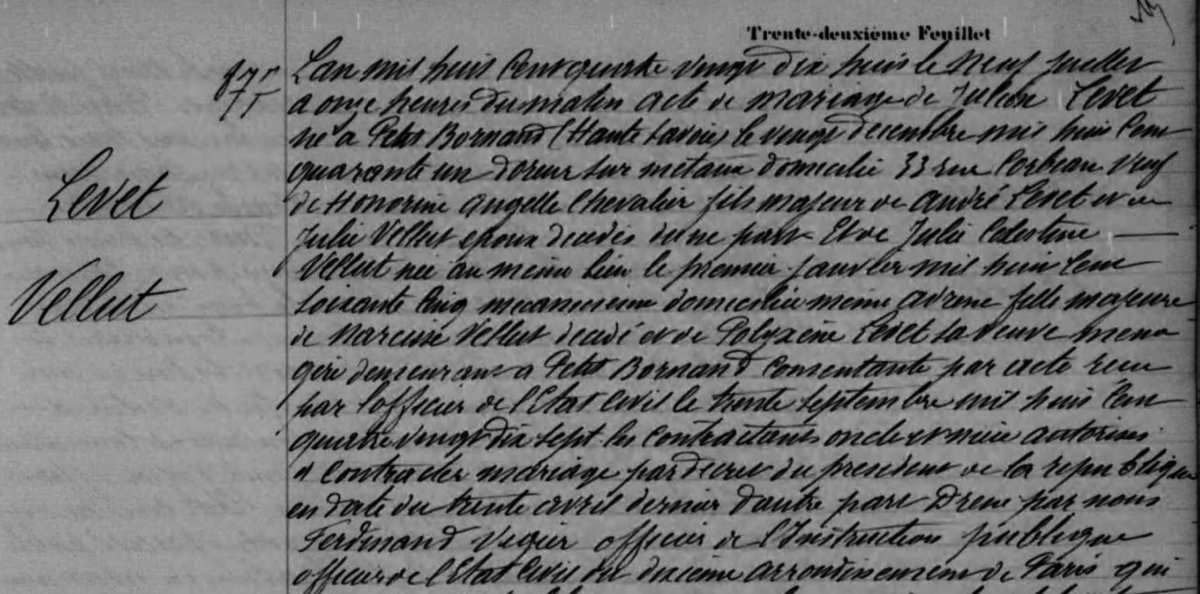 Trente-deuxième Feuillet
875
Lan mil huit Cent quatre vingt dix huit le neuf juillet
a onze heures du matin acte de mariage de Julien Levet
né à Petit Bornand (Haute Savoie) le vingt decembre mil huit Cent
quarante un doreur sur métaux domicilié 33 rue Corbeau veuf
de Honorine Angelle Chevalier fils majeur de André Levet et de
Julie Vellut epoux decedés d'une part Et de Julie Celestine
Levet
Vellut née au meme lieu le premier Janvier mil huit Cent
Vellut
soixante Cinq mecanicienne domiciliée meme adresse fille majeure
de Narcisse Vellut decedé et de Polyxène Levet sa veuve mena
gère demeurant a Petit Bornand Consentante par acte recu
par l'officier de l'Etat Civil le trente septembre mil huit Cent
quatre vingt dix sept les Contractants oncle et niece autorisés
a Contracter mariage par decret du president de la republique
en date du trente avril dernier d'autre part Dressé par nous
Ferdinand Vegier officier de l'Instruction publique
officier de l'Etat Civil du dixieme arrondissement de Paris qui